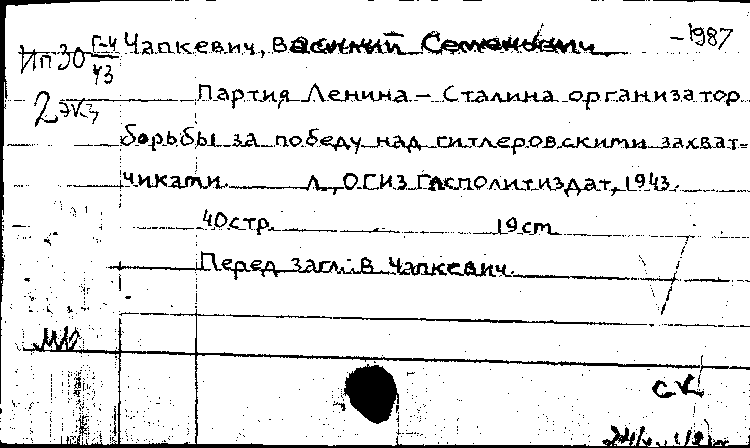 Ип30 Г-4/43 Чапкевич, Василий Семенович -1987
2 экз
Партия Ленина – Сталина организатор
борьбы за победу над гитлеровскими захват-
чиками. Л., ОГИЗ Госполитиздат, 1943.
40 стр. 19 cm
Перед загл.: В. Чапкевич.
СК